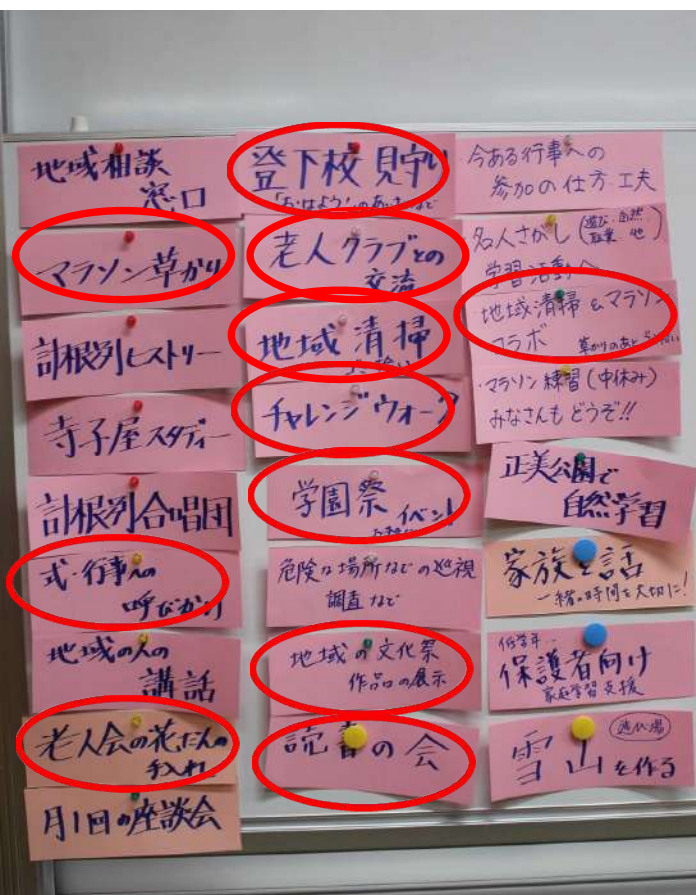 地域相談
窓口
マラソン草かり
計根別ヒストリー
寺子屋スタディー
計根別合唱団
式・行事への
呼びかけ
地域の人の
講話
老人会の花だんの
手入れ
月1回の座談会
登下校見守り
「おはよう」のあいさつなど
老人クラブとの
交流
地域清掃
チャレンジウォーク
学園祭
イベント
危険な場所などの巡視
調査など
地域の文化祭
作品の展示
読書の会
今ある行事への
参加の仕方工夫
名人さがし(遊び・自然
産業・他)
学習活動へ
地域清掃&マラソン
コラボ 草かりのあと
・マラソン練習(中休み)
みなさんもどうぞ!!
正美公園で
自然学習
家族と話
一緒の時間を大切に!
低学年
保護者向け
家庭学習支援
遊び場
雪山を作る